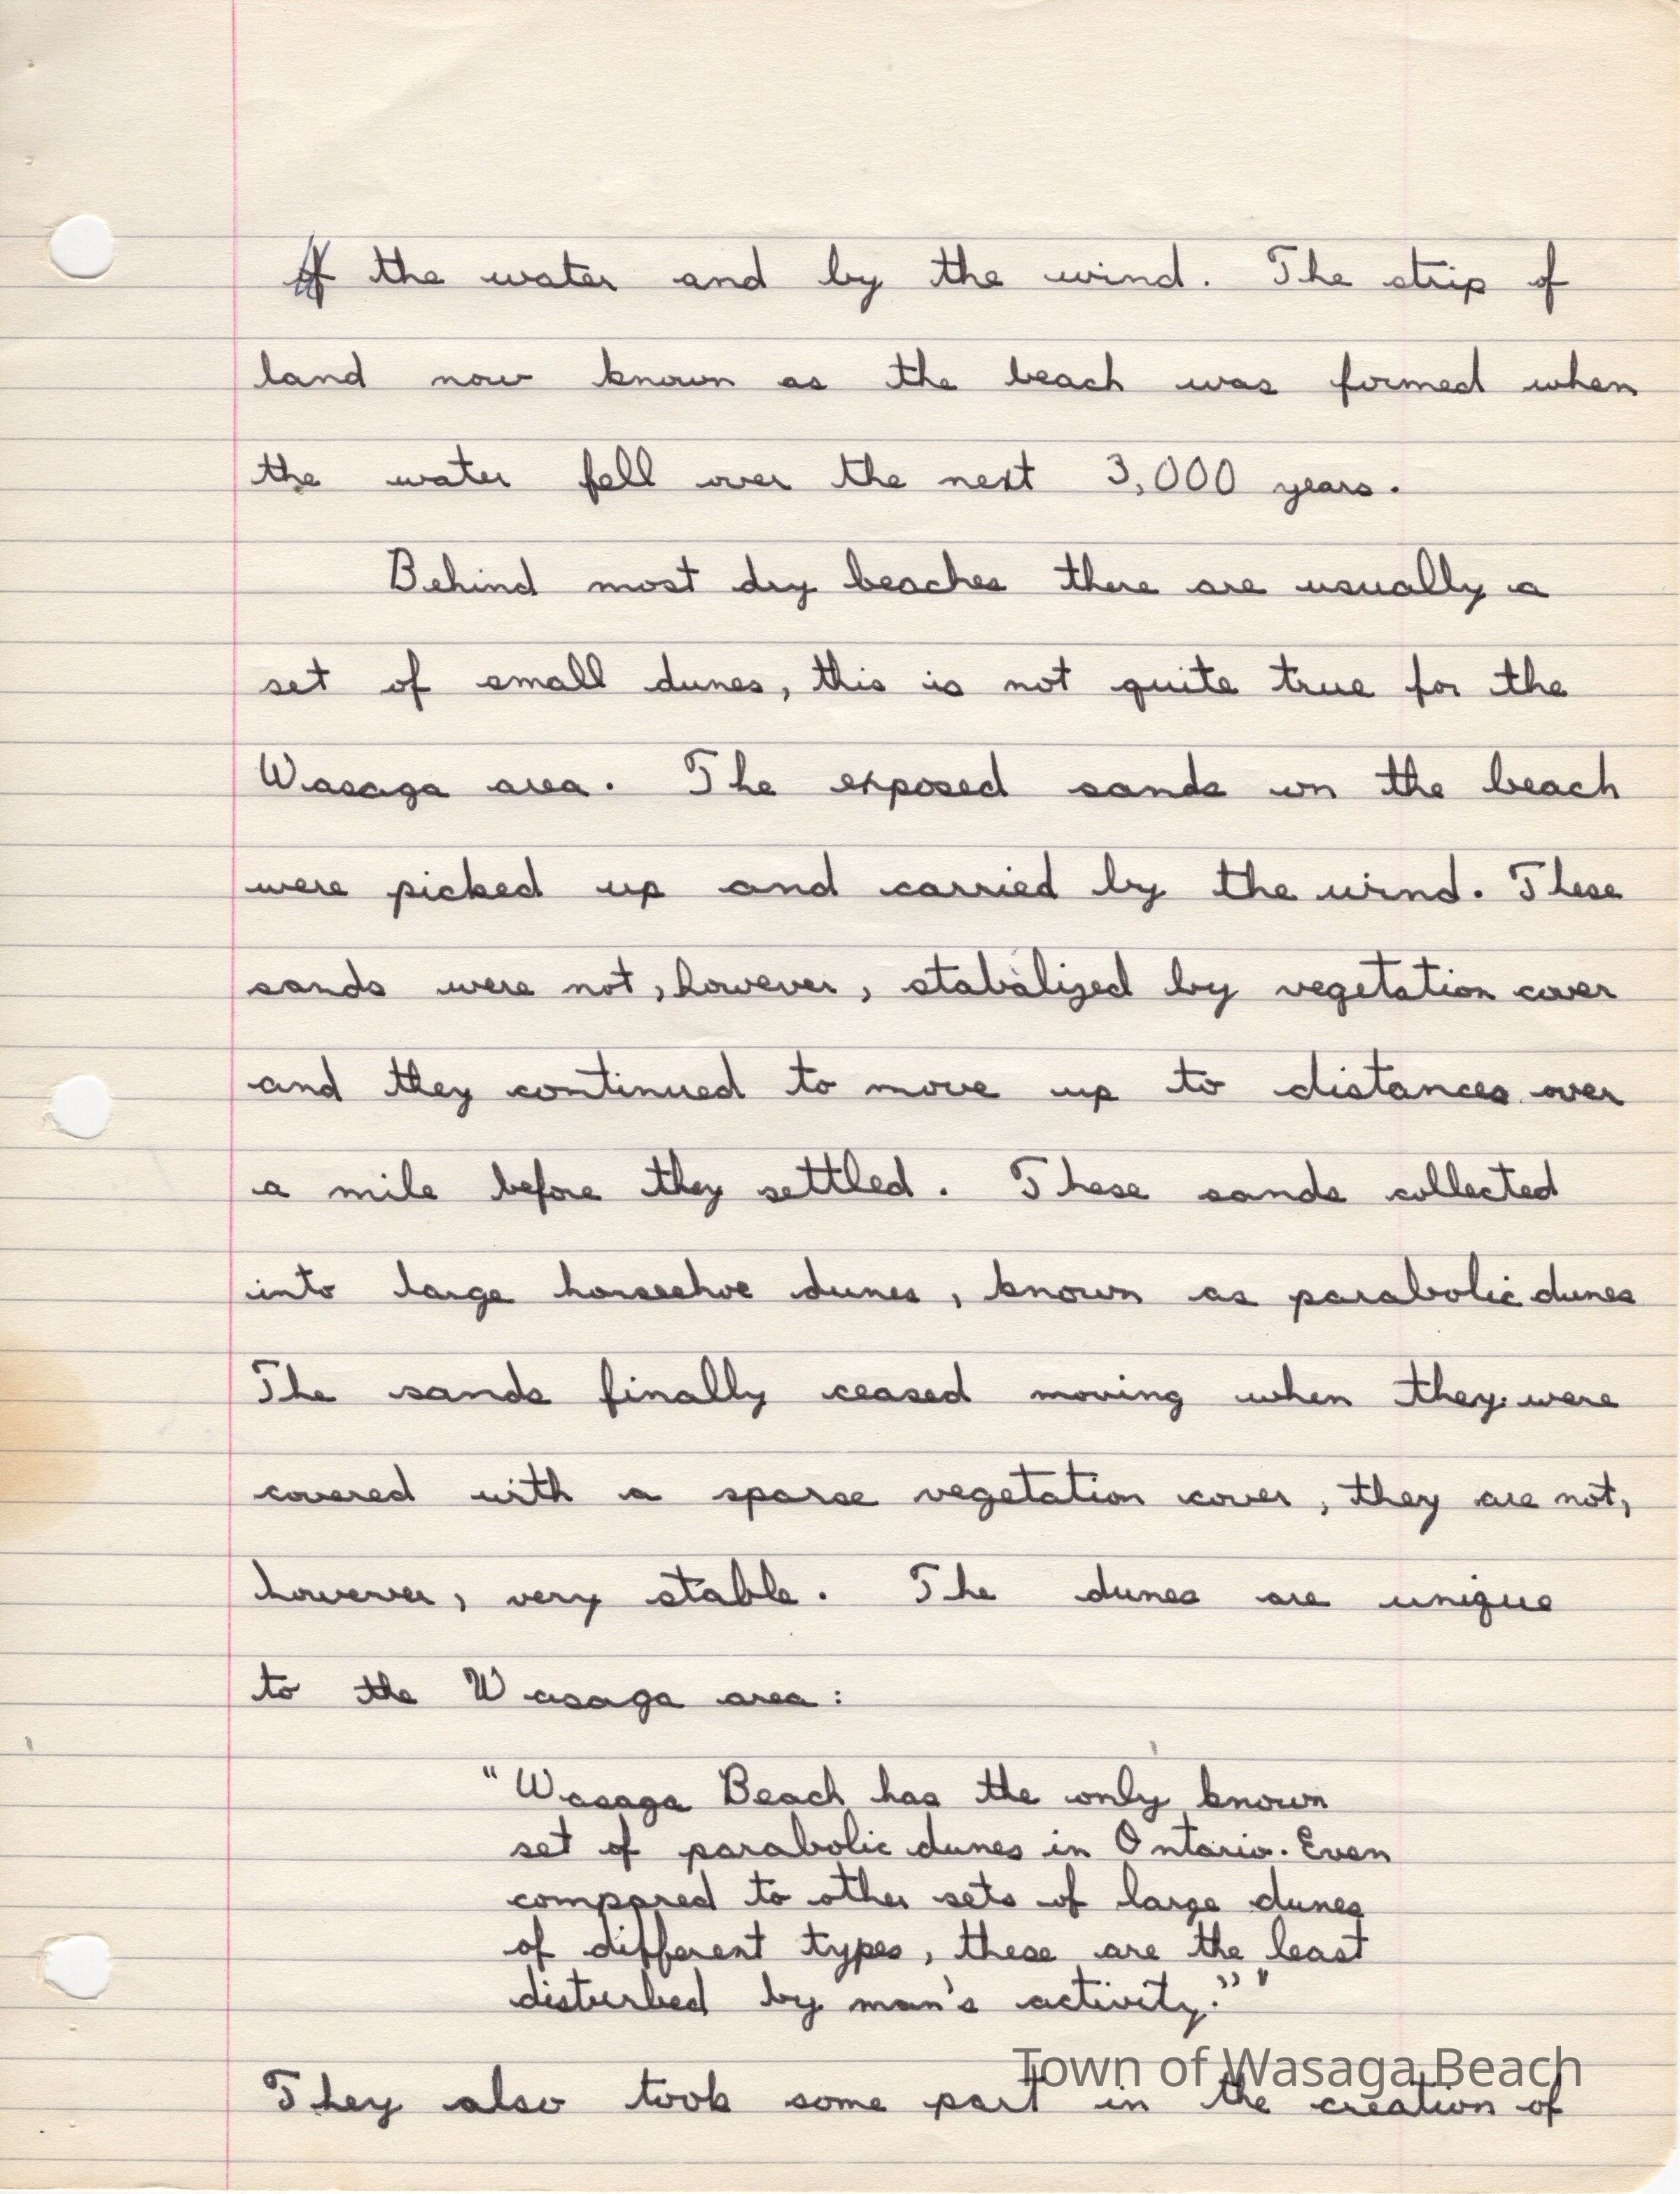 of the water and by the wind. The strip of
land now known as the beach was formed when
the water fell over the next 3,000 years.
Behind most dry beaches there are usually a
set of small dunes, this is not quite true for the
Wasaga area. The exposed sands on the beach
were picked up and carried by the wind. These
sands were not, however, stabilized by vegetation cover
and they continued to move up to distances over
a mile before they settled. These sands collected
into large horseshoe dunes, known as parabolic dunes
The sands finally ceased moving when they were
covered with a sparse vegetation cover, they are not,
however, very stable. The dunes are unique
to the Wasaga area:
"Wasaga Beach has the only known
set of parabolic dunes in Ontario. Even
compared to other sets of large dunes
of different types, these are the least
disturbed by man's activity." "
Town of Wasaga Beach
They also took some part in the creation of